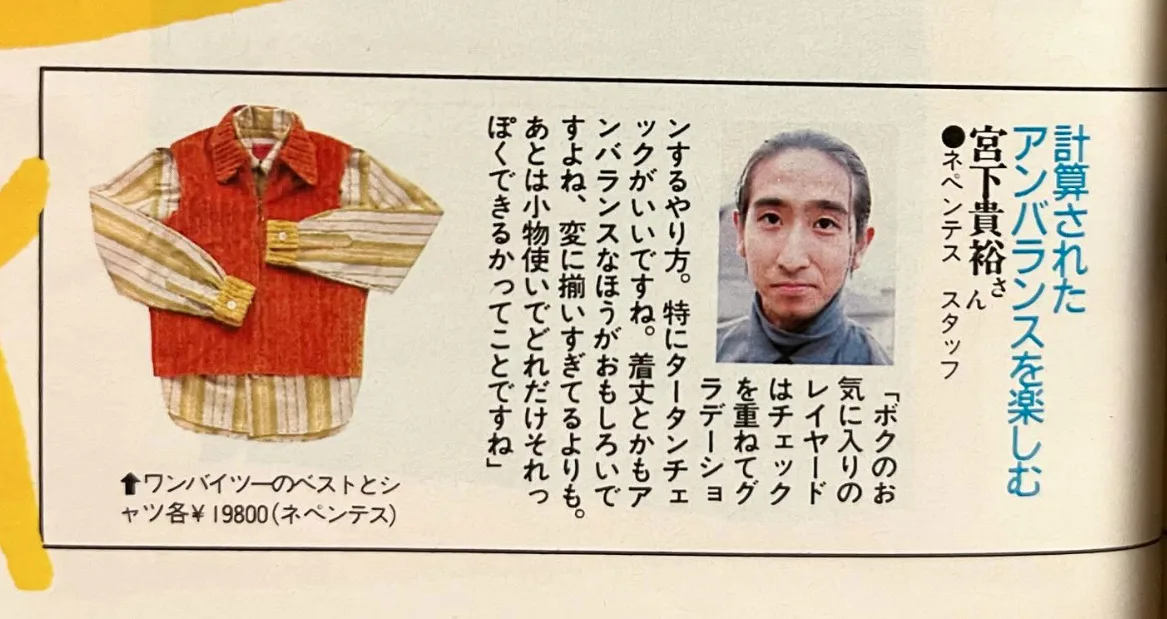 計算された
アンバランスを楽しむ
宮下貴裕さん
●ネペンテス スタッフ
「ボクのお
気に入りの
レイヤード
はチェック
を重ねてグ
ラデーショ
ンするやり方。特にタータンチェ
ックがいいですね。着丈とかもア
ンバランスなほうがおもしろいで
すよね、変に揃いすぎてるよりも。
あとは小物使いでどれだけそれっ
ぽくできるかってことですね」
⬆ワンバイツーのベストとシ
ャツ各¥19800(ネペンテス)